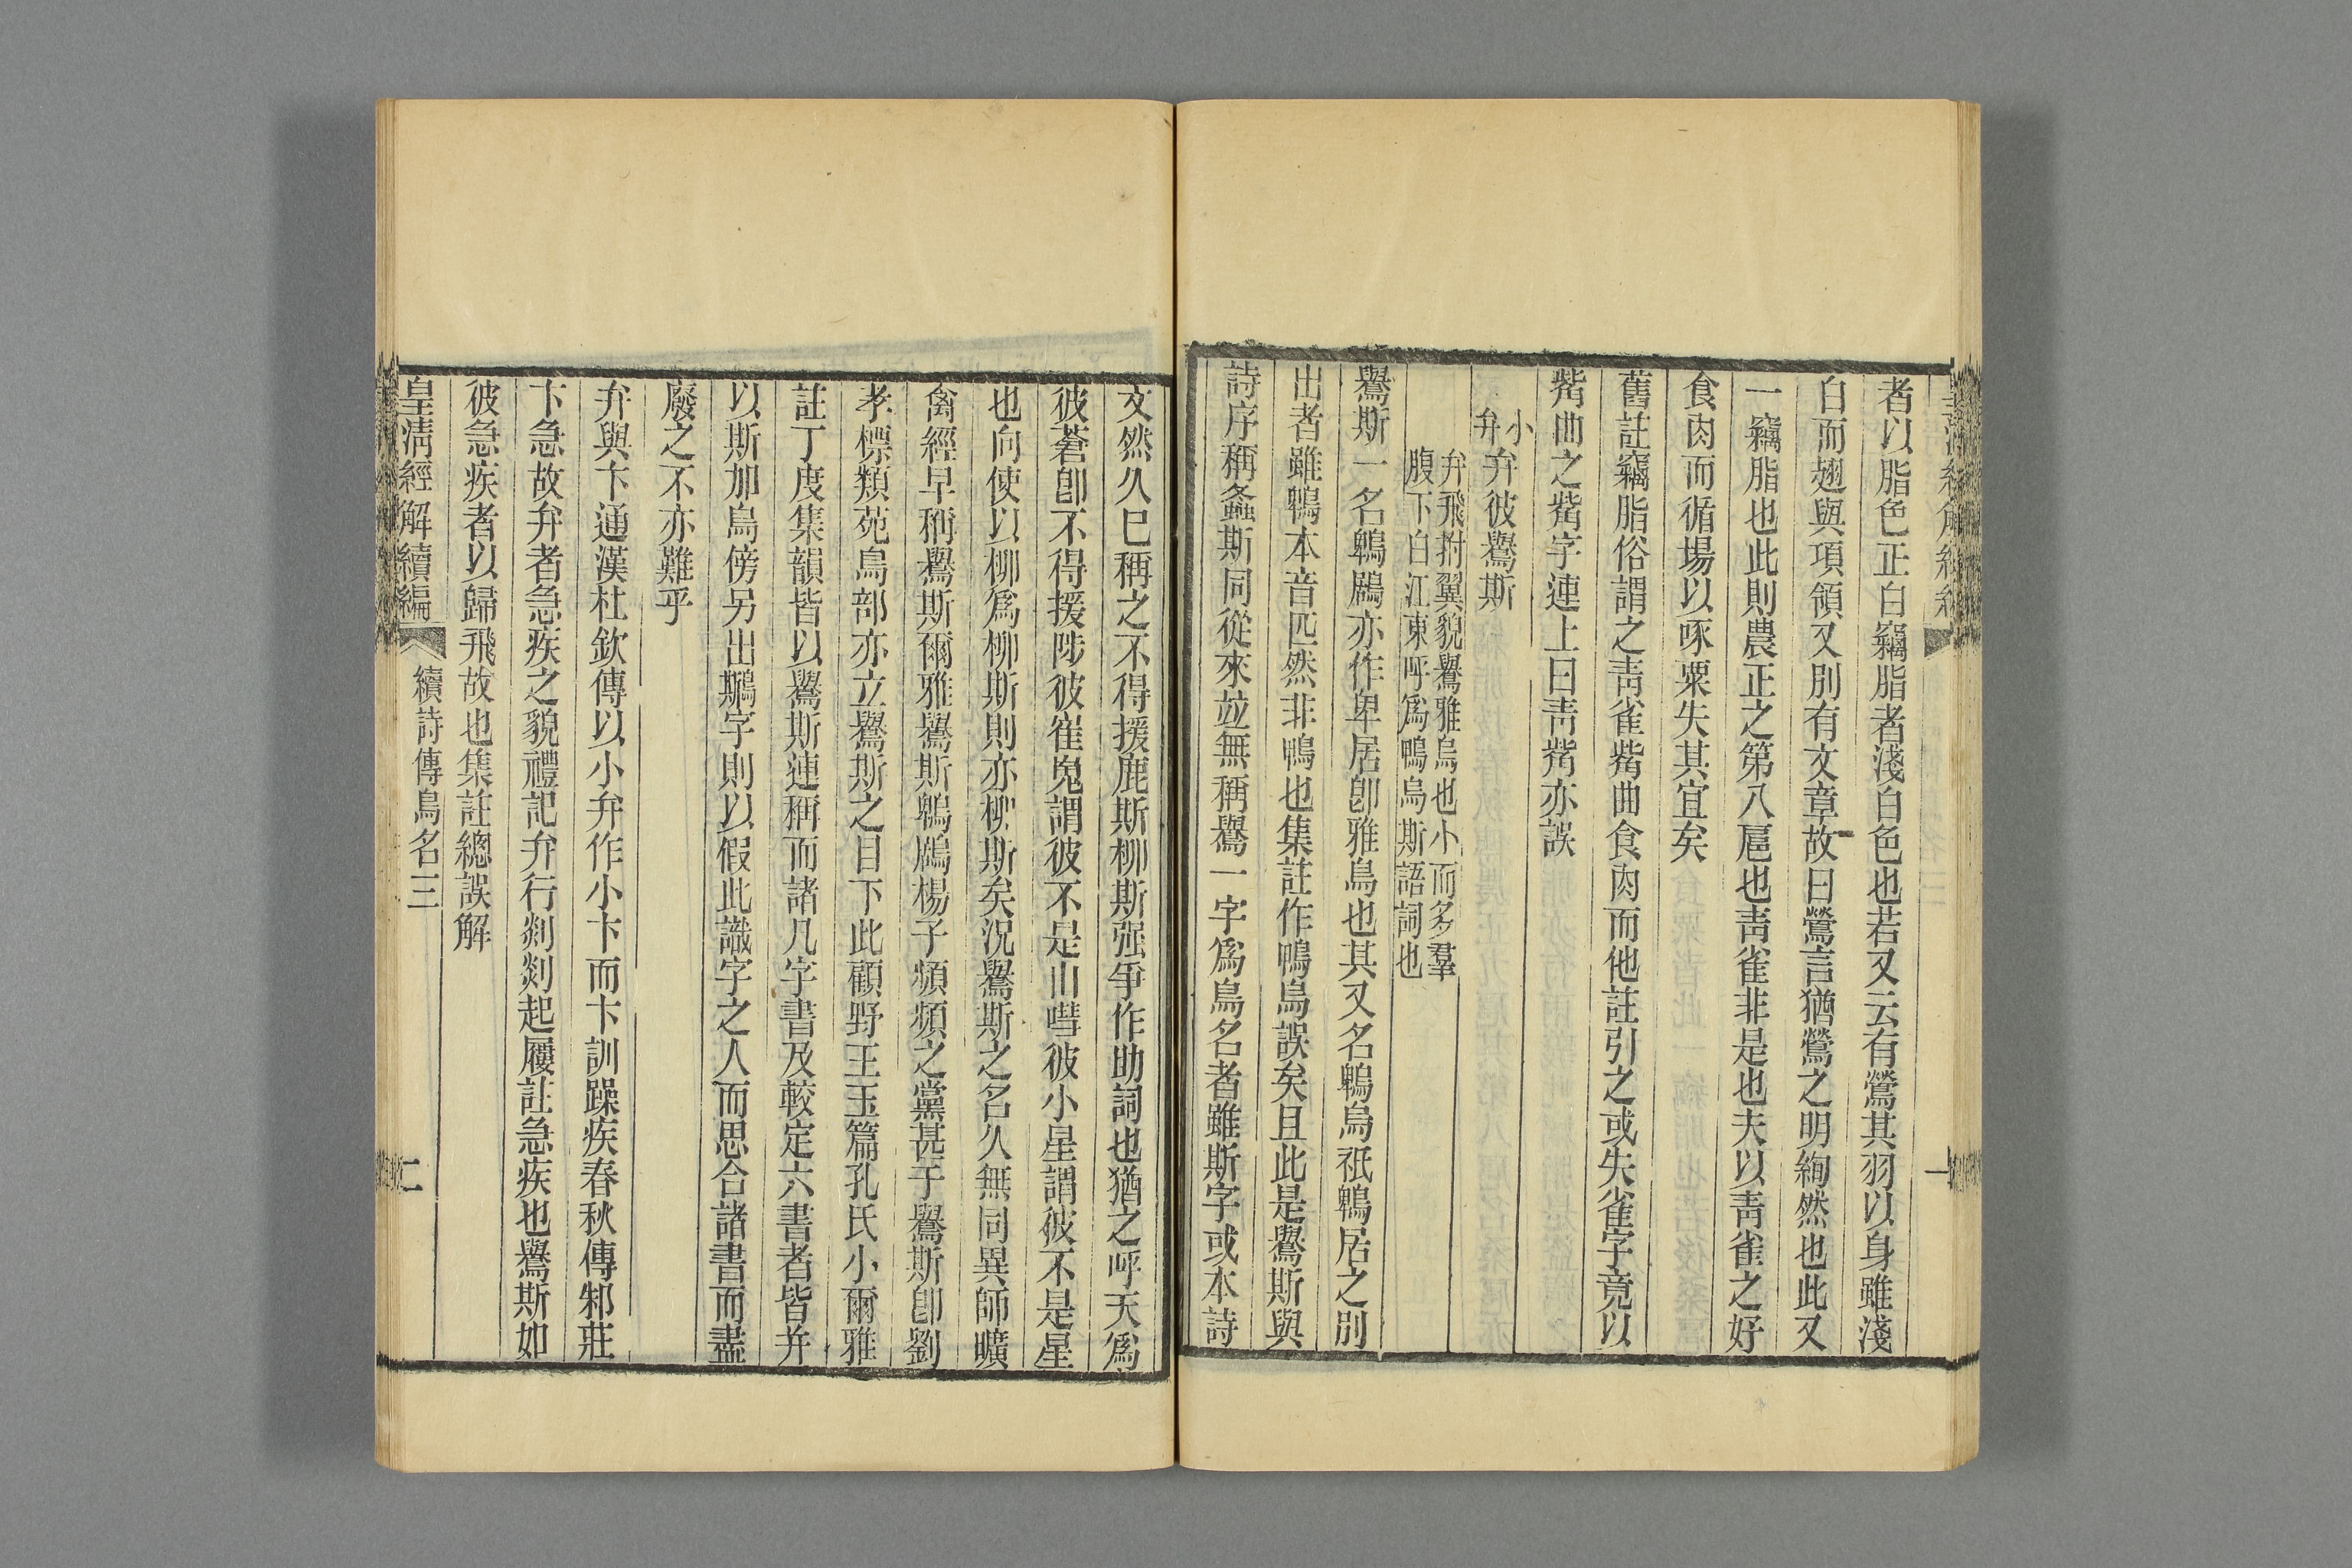 者以脂色正白竊脂者淺白色也若又云有鶯其羽以身雖淺
白而翅與項領又別有文章故曰鶯言猶鶯之明絢然也此又
一竊脂也此則農正之第八扈也靑雀非是也夫以靑雀之好
食肉而循場以啄粟失其宜矣
舊註竊脂俗謂之靑雀觜曲食肉而他註引之或失雀字竟以
觜曲之觜字連上曰靑觜亦誤
小弁弁彼鸒斯
弁飛拊翼貌鸒雅烏也小而多羣
腹下白江東呼爲鴨烏斯語詞也
鸒斯一名鵯鶋亦作卑居卽雅烏也其又名鵯烏祇鵯居之別
出者雖鵯本音匹然非鴨也集註作鴨烏誤矣且此是鸒斯與
詩序稱螽斯同從來竝無稱鸒一字爲鳥名者雖斯字或本詩
文然久已稱之不得援鹿斯柳斯强爭作助詞也猶之呼天爲
彼蒼卽不得援陟彼崔嵬謂彼不是山嘒彼小星謂彼不是星
也向使以柳爲柳斯則亦柳斯矣況鸒斯之名久無同異師曠
禽經早稱鸒斯爾雅鸒斯鵯鶋楊子頻頻之黨甚于鸒斯卽劉
孝標類苑鳥部亦立鸒斯之目下此顧野王玉篇孔氏小爾雅
註丁度集韻皆以鸒斯連稱而諸凡字書及較定六書者皆幷
以斯加鳥傍另出鷉字則以假此識字之人而思合諸書而盡
廢之不亦難乎
弁與卞通漢杜欽傳以小弁作小卞而卞訓躁疾春秋傳邾莊
卞急故弁者急疾之貌禮記弁行剡剡起屨註急疾也鸒斯如
彼急疾者以歸飛故也集註總誤解
皇淸經解續編
續詩傳鳥名三
二